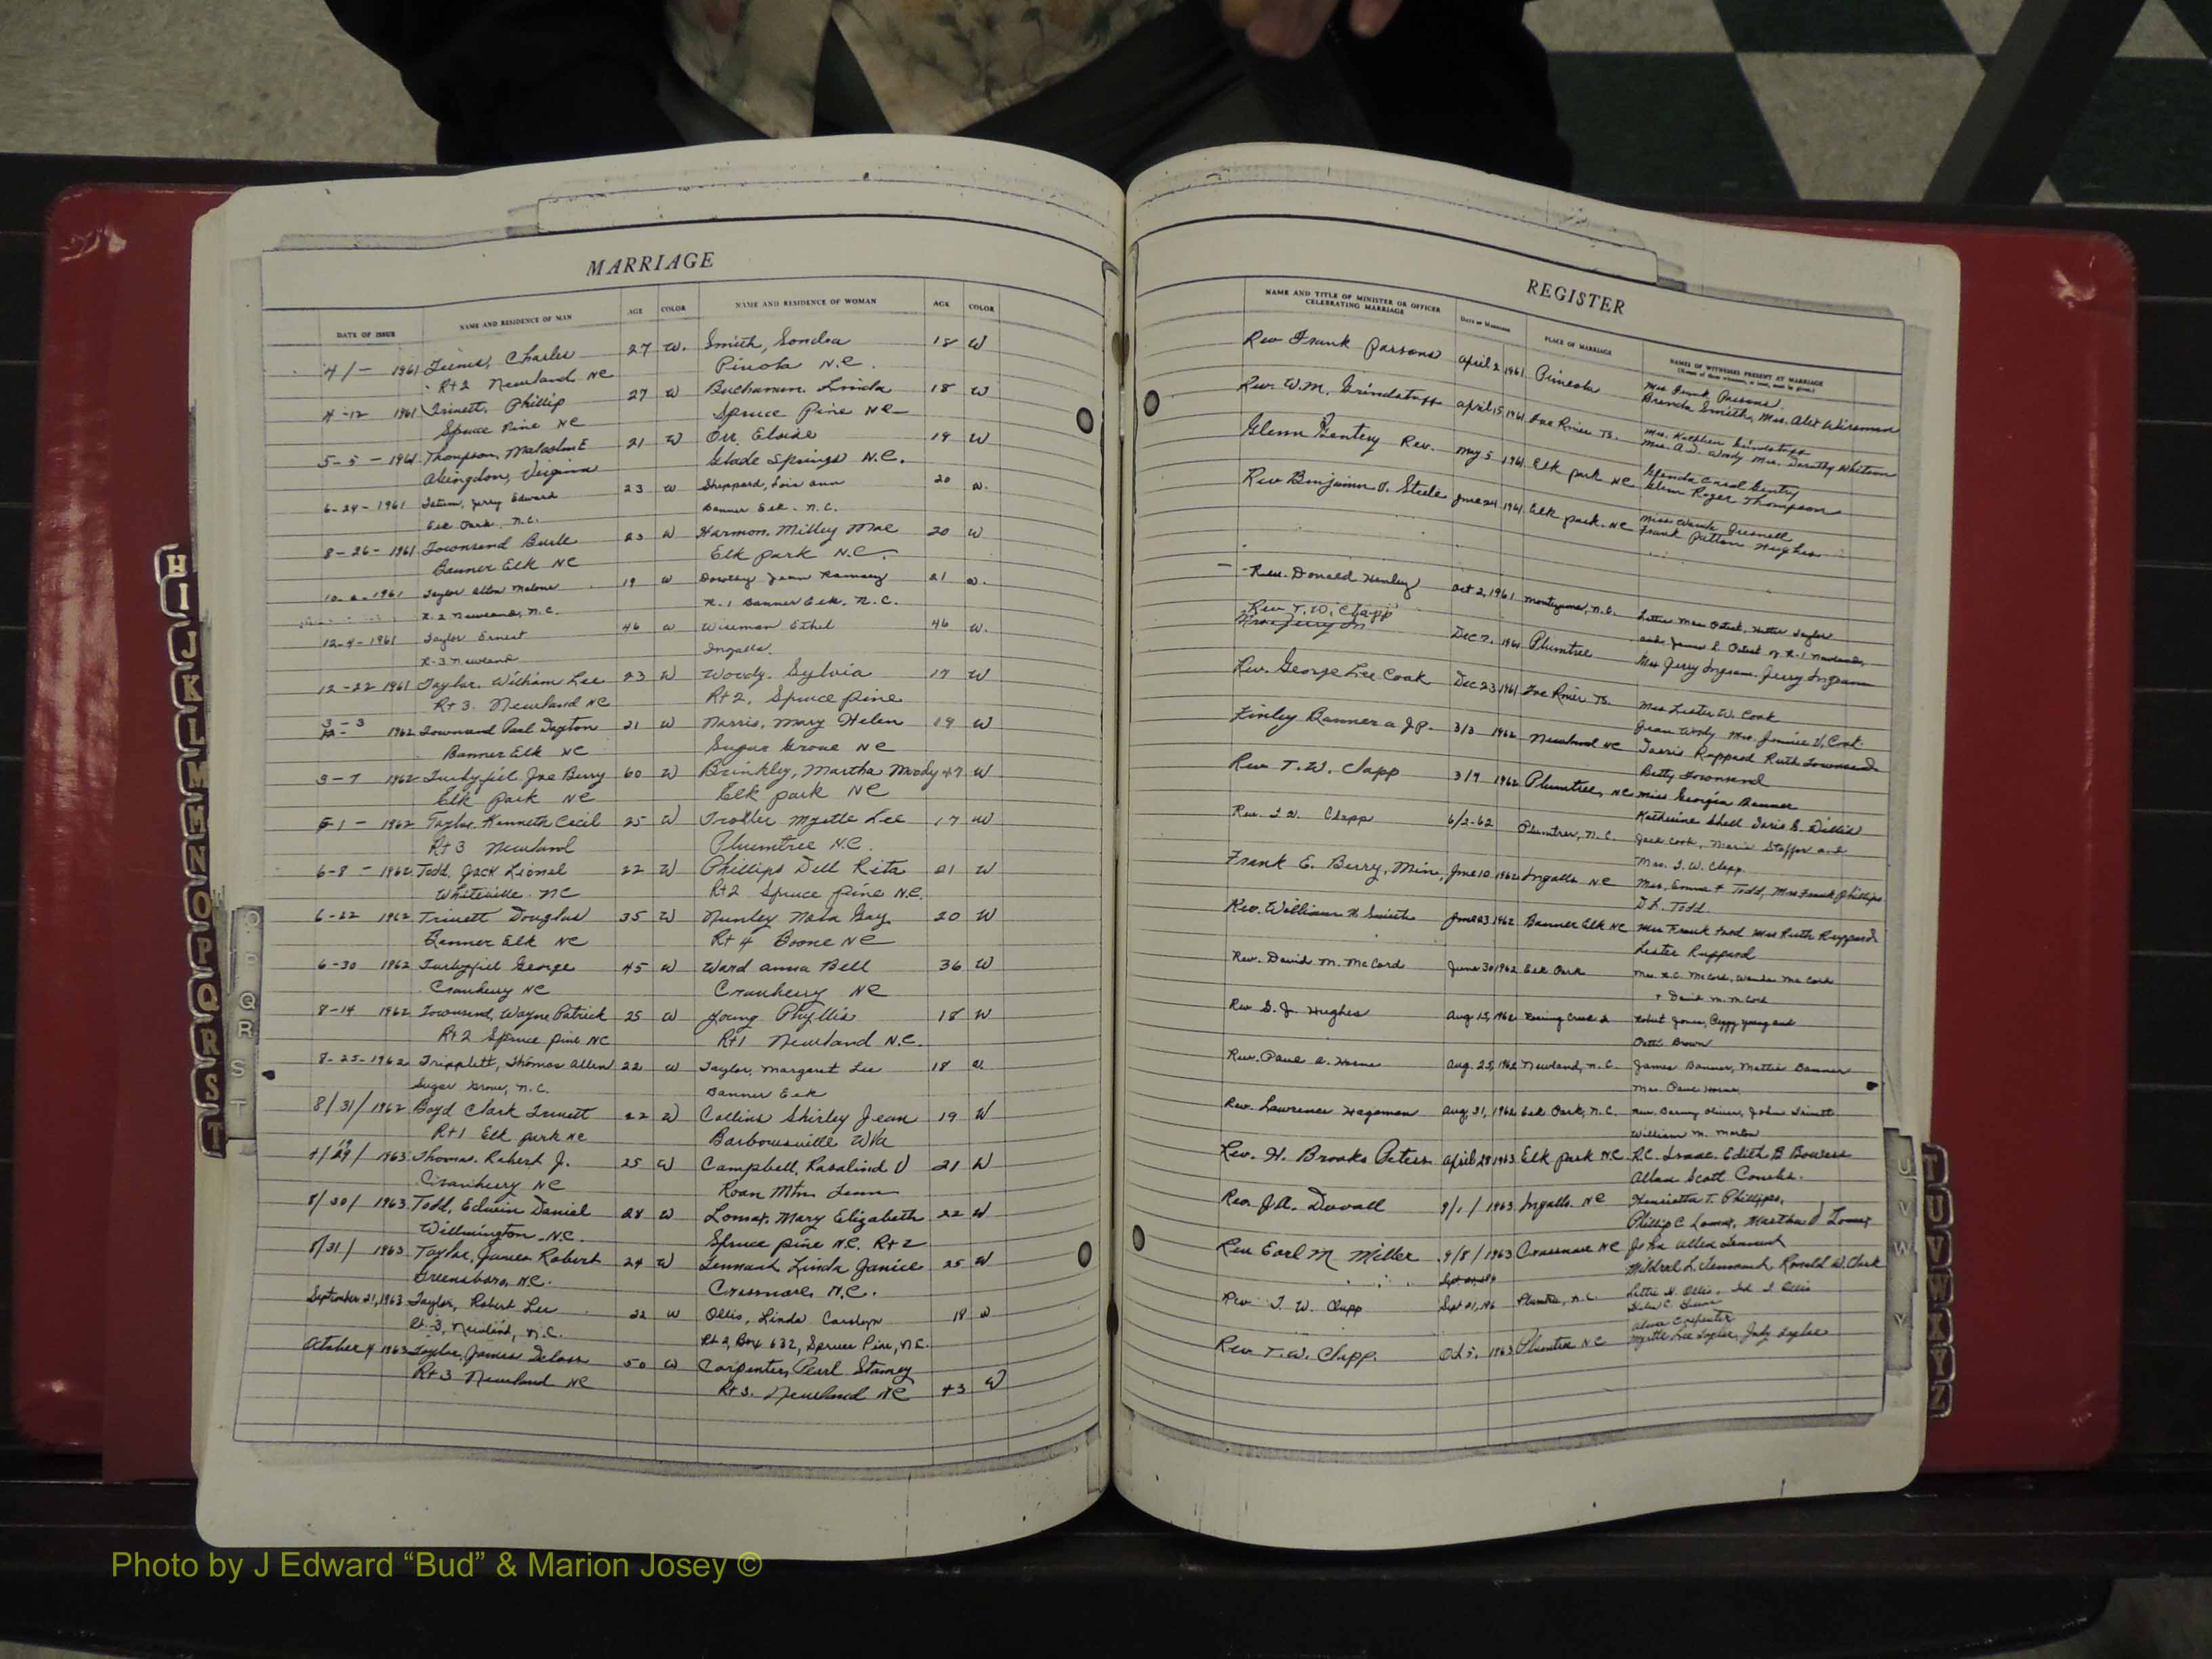 MARRIAGE
DATE OF ISSUE NAME AND RESIDENCE OF MAN AGE COLOR NAME AND RESIDENCE OF WOMAN AGE COLOR
4/ - 1961 Charles 27 W. Smith, Sondra 18 W
Rt 2 Newland, NC Pineola N.C.
4-12 1961 Phillip 27 W Buchanan, Linda 18 W
Spruce Pine NC Spruce Pine NC
5-5-1961 Thompson, Malcolm E 21 W Orr, Eloise 19 W
Abingdon, Virginia Glade Springs N.C.
6-24-1961 Jerry Edward 23 W Sheppard, Lois Ann 20 W.
Elk Park, N.C. Banner Elk, N.C.
8-26-1961 Townsend Burle 23 W Harmon, Milley Mae 20 W
Banner Elk NC Elk Park N.C.
1961 Taylor Alton 19 W Dorothy Jean Ramsey 21 W.
R. 2 Newland, N.C. R. 1 Banner Elk, N.C.
12-4-1961 Taylor Ernest 46 W Wiseman Ethel 46 W.
R-3 Newland Ingalls.
12-22 1961 Taylor, William Lee 23 W Woody, Sylvia 17 W
Rt 3. Newland NC Rt 2, Spruce Pine
3-3 1962 Townsend Paul Dayton 21 W Norris, Mary Helen 19 W
Banner Elk NC Sugar Grove NC
3-7 1962 Turbyfiel Joe Berry 60 W Brinkley, Martha Moody 47 W
Elk Park NC Elk park NC
1962 Taylor Kenneth Cecil 25 W Myrtle Lee 17 W
Rt 3 Newland Plumtree N.C.
6-8 - 1962 Todd, Jack Lionel 22 W Phillips Dell Rita 21 W
Whiteville NC Rt 2 Spruce pine N.C.
6-22 1962 Trivett Douglas 35 W Nunley Gay 20 W
Banner Elk NC Rt 4 Boone NC
6-30 1962 Turbyfiel George 45 W Ward Anna Bell 36 W
Cranberry NC Cranberry NC
8-14 1962 Townsend, Wayne Patrick 25 W Young Phyllis 18 W
Rt 2 Spruce pine NC Rt 1 Newland N.C.
8-25-1962 Tripplett, Thomas Allen 22 W Taylor, Margaret Lee 18 W
Sugar Grove, N.C. Banner Elk
8/31/1962 Boyd Clark Trivett 22 W Collins Shirley Jean 19 W
Rt 1 Elk park NC Barboursville WVa
1963 Thomas, Robert J. 25 W Campbell, Rosalind V 21 W
Cranberry NC Roan Mtn Tenn
8/30/ 1963 Todd, Edwin Daniel 28 W Lomax, Mary Elizabeth 22 W
Wilmington, N.C. Spruce pine N.C. Rt 2
8/31/ 1963 Taylor, James Robert 24 W Linda Janice 25 W
Greensboro, NC. Crossnore, N.C.
September 21, 1963 Taylor, Robert Lee 22 W Ollis, Linda Carolyn 18 W
Rt-3, Newland, N.C. Rt 2, Box 632, Spruce Pine, N.C.
October 4 1963 Taylor, James 50 W Carpenter, Pearl Stamey
Rt 3 Newland NC Rt 3. Newland NC 43 W
REGISTER
NAME AND TITLE OF MINISTER OR OFFICER CELEBRATING MARRIAGE DATE OF MARRIAGE PLACE OF MARRIAGE NAMES OF WITNESSES PRESENT AT MARRIAGE
Rev Frank Parsons April 2 1961 Pineola Mrs Frank Parsons
Brenda Smith, Mrs. Alex Wiseman
Rev. W.M. Grindstaff April 15 1961 Toe River TS. Mrs. Kathleen Grindstaff
Mrs. A.D. Woody Mrs. Dorothy
Glenn Gentry Rev. May 5 1961 Elk park NC Glenda Carol Gentry
Glenn Roger Thompson
Rev Benjamin V. Steele June 24 1961 Elk park. NC Miss
Frank Patton Hughes
Rev. Donald Henley Oct 2, 1961 Montezuma, N.C.
Rev T.W. Clapp Dec 7, 1961 Plumtree Mrs Jerry Ingram, Jerry Ingram
Rev. George Lee Cook Dec 23 1961 Toe River TS. Mrs Lester W. Cook
Jean Woody Mrs. V. Cook
Finley Banner a J.P. 3/3 1962 Newland NC Ruppard Ruth Townsend
Betty Townsend
Rev T.W. Clapp 3/9 1962 Plumtree, NC Miss Georgia Banner
Katherine Shell
Rev. T.W. Clapp 6/2-62 Plumtree, N.C. Jack Cook, Marie and
Mrs. T.W. Clapp
Frank E. Berry, Min. June 10 1962 Ingalls NC Mrs. Emma Todd, Mrs Frank Phillips
D.L. Todd.
Rev. William N Smith June 23 1962 Banner Elk NC Mrs Frank Mrs Ruth Ruppard
Lester Ruppard
Rev. David M. McCord June 30 1962 Elk Park Mrs. R.C. McCord, Wanda McCord
+ David M. McCord
Rev G.J. Hughes Aug 15, 1962 Roaring Creek Robert Jones, Peggy Young and
Brown
Rev. Paul Horne Aug. 25, 1962 Newland, N.C. James Banner, Mattie Banner
Mrs. Paul Horne
Rev. Lawrence Hagaman Aug 31, 1962 Elk Park, N.C. Rev. Barney Oliver, John Trivett
William M. Morton
Rev. H. Brooks Peters April 28 1963 Elk park NC R.C. Isaac, Edith B Bowers
Allan Scott Combs.
Rev. J.A. Duvall 9/1/1963 Ingalls NC Henrietta T. Phillips,
Phillip C Lomax, Martha Lomax
Rev Earl M Miller 9/8/1963 Crossnore NC John Allen
Mildred L. Ronald W. Clark
Rev T.W. Clapp Sept 21, Plumtree, N.C. Ollis
Rev T.W. Clapp. Oct 5, 1963 Plumtree NC Alma Carpenter
Myrtle Lee Taylor, Judy Taylor
H
I
J
K
L
M
N
O
P
Q
R
S
T
Q
R
S
T
U
V
W
Y
T
U
V
W
X
Y
Z
Photo by J Edward “Bud” & Marion Josey ©